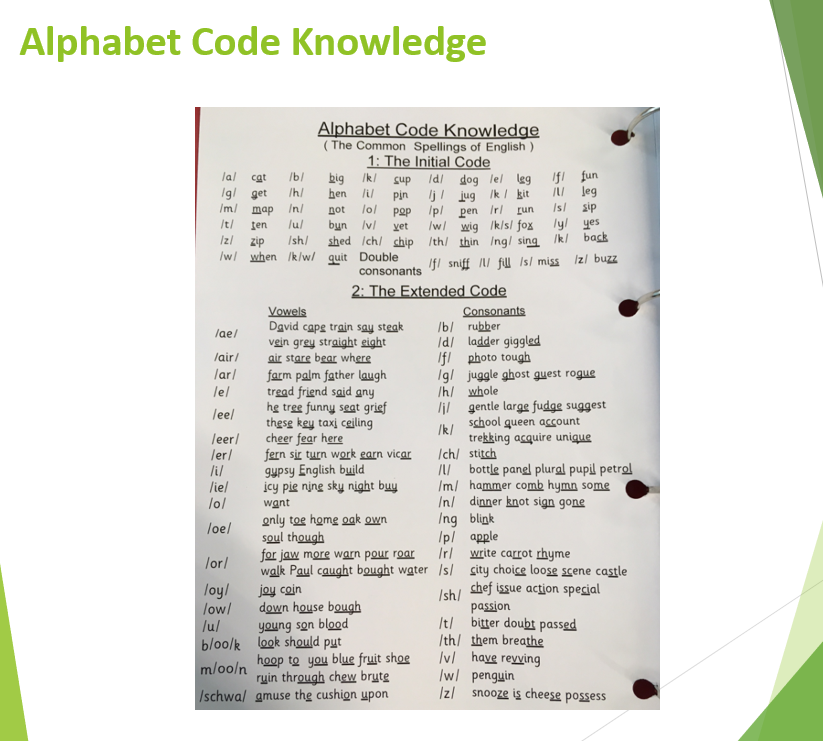 Alphabet Code Knowledge
Alphabet Code Knowledge
( The Common Spellings of English )
1: The Initial Code
/a/ cat /b/ big /k/ cup /d/ dog /e/ leg /f/ fun
/g/ get /h/ hen /i/ pin /j / jug /k / kit /l/ leg
/m/ map /n/ not /o/ pop /p/ pen /r/ run /s/ sip
/t/ ten /u/ bun /v/ vet /w/ wig /k/s/ fox /y/ yes
/z/ zip /sh/ shed /ch/ chip /th/ thin /ng/ sing /k/ back
/w/ when /k/w/ quit Double consonants /f/ sniff /l/ fill /s/ miss /z/ buzz
2: The Extended Code
Vowels
/ae/ David cape train say steak
vein grey straight eight
/air/ air stare bear where
/ar/ farm palm father laugh
/e/ tread friend said any
/ee/ he tree funny seat grief
these key taxi ceiling
/eer/ cheer fear here
/er/ fern sir turn work earn vicar
/i/ gypsy English build
/ie/ icy pie nine sky night buy
/o/ want
/oe/ only toe home oak own
soul though
/or/ for jaw more warn pour roar
walk Paul caught bought water
/oy/ joy coin
/ow/ down house bough
/u/ young son blood
b/oo/k look should put
m/oo/n hoop to you blue fruit shoe
ruin through chew brute
/schwa/ amuse the cushion upon
Consonants
/b/ rubber
/d/ ladder giggled
/f/ photo tough
/g/ juggle ghost guest rogue
/h/ whole
/j/ gentle large fudge suggest
/k/ school queen account
trekking acquire unique
/ch/ stitch
/l/ bottle panel plural pupil petrol
/m/ hammer comb hymn some
/n/ dinner knot sign gone
/ng blink
/p/ apple
/r/ write carrot rhyme
/s/ city choice loose scene castle
/sh/ chef issue action special
passion
/t/ bitter doubt passed
/th/ them breathe
/v/ have revving
/w/ penguin
/z/ snooze is cheese possess